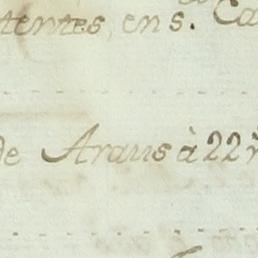 tentes, en s. Ca
de Araus à 22 r